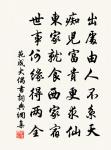 出處由人不系天
痴兒富貴更求仙
東家就食西家宿
世事何緣得兩全
范成大偶書詞典網集